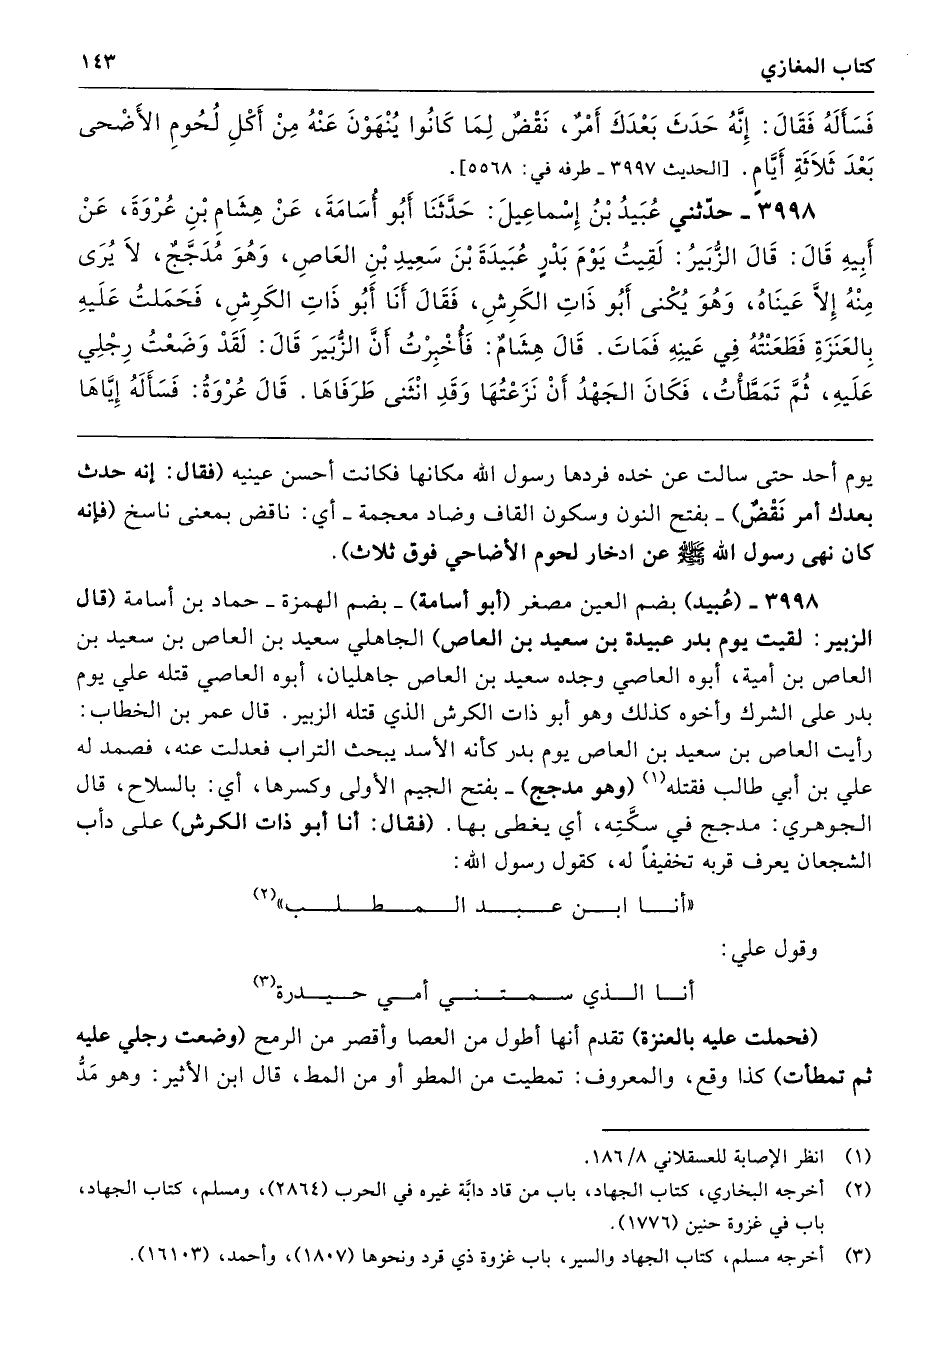 كتاب المغازي ١٤٣
فَسَأَلَهُ فَقَالَ: إِنَّهُ حَدَثَ بَعْدَكَ أَمْرٌ، نَقْضٌ لِمَا كَانُوا يُنْهَوْنَ عَنْهُ مِنْ أَكْلِ لُحُومِ الأَضْحى
بَعْدَ ثَلاَثَةِ أَيَّامٍ. [الحديث ٣٩٩٧ ـ طرفه في: ٥٥٦٨].
٣٩٩٨ ـ حدّثني عُبَيدُ بْنُ إِسْماعِيلَ: حَدَّثَنَا أَبُو أُسَامَةَ، عَنْ هِشَامِ بْنِ عُرْوَةَ، عَنْ
أَبِيهِ قَالَ: قَالَ الزُّبَيرُ: لَقِيتُ يَوْمَ بَدْرٍ عُبَيدَةَ بْنَ سَعِيدِ بْنِ العَاصِ، وَهُوَ مُدَجَّجٌ، لاَ يُرَى
مِنْهُ إِلاَّ عَينَاهُ، وَهُوَ يُكْنى أَبُو ذَاتِ الكَرِشِ، فَقَالَ أَنَا أَبُو ذَاتِ الكَرِشِ، فَحَمَلتُ عَلَيهِ
بِالعَنَزَةِ فَطَعَنْتُهُ فِي عَينِهِ فَمَاتَ. قَالَ هِشَامٌ: فَأُخْبِرْتُ أَنَّ الزُّبَيرَ قَالَ: لَقَدْ وَضَعْتُ رِجْلِي
عَلَيهِ، ثُمَّ تَمَطَّأْتُ، فَكَانَ الجَهْدُ أَنْ نَزَعْتُهَا وَقَدِ انْثَنى طَرَفَاهَا. قَالَ عُرْوَةُ: فَسَأَلَهُ إِيَّاهَا
يوم أحد حتى سالت عن خده فردها رسول الله مكانها فكانت أحسن عينيه (فقال: إنه حدث
بعدك أمر نَقْضٌ) ـ بفتح النون وسكون القاف وضاد معجمة ـ أي: ناقض بمعنى ناسخ (فإنه
كان نهى رسول الله ﷺ عن ادخار لحوم الأضاحي فوق ثلاث).
٣٩٩٨ ـ (عُبيد) بضم العين مصغر (أبو أسامة) ـ بضم الهمزة ـ حماد بن أسامة (قال
الزبير: لقيت يوم بدر عبيدة بن سعيد بن العاص) الجاهلي سعيد بن العاص بن سعيد بن
العاص بن أمية، أبوه العاصي وجده سعيد بن العاص جاهليان، أبوه العاصي قتله علي يوم
بدر على الشرك وأخوه كذلك وهو أبو ذات الكرش الذي قتله الزبير. قال عمر بن الخطاب:
رأيت العاص بن سعيد بن العاص يوم بدر كأنه الأسد يبحث التراب فعدلت عنه، فصمد له
علي بن أبي طالب فقتله(١) (وهو مدجج) ـ بفتح الجيم الأولى وكسرها، أي: بالسلاح، قال
الجوهري: مدجج في سكَّتِه، أي يغطى بها. (فقال: أنا أبو ذات الكرش) على دأب
الشجعان يعرف قربه تخفيفاً له، كقول رسول الله:
«أنـا ابـن عـبـد الـمـطـلـب»(٢)
وقول علي:
أنـا الـذي سـمـتـنـي أمـي حـيـدرة(٣)
(فحملت عليه بالعنزة) تقدم أنها أطول من العصا وأقصر من الرمح (وضعت رجلي عليه
ثم تمطأت) كذا وقع، والمعروف: تمطيت من المطو أو من المط، قال ابن الأثير: وهو مَدُّ
(١) انظر الإصابة للعسقلاني ٨/ ١٨٦.
(٢) أخرجه البخاري، كتاب الجهاد، باب من قاد دابَّة غيره في الحرب (٢٨٦٤)، ومسلم، كتاب الجهاد،
باب في غزوة حنين (١٧٧٦).
(٣) أخرجه مسلم، كتاب الجهاد والسير، باب غزوة ذي قرد ونحوها (١٨٠٧)، وأحمد، (١٦١٠٣).